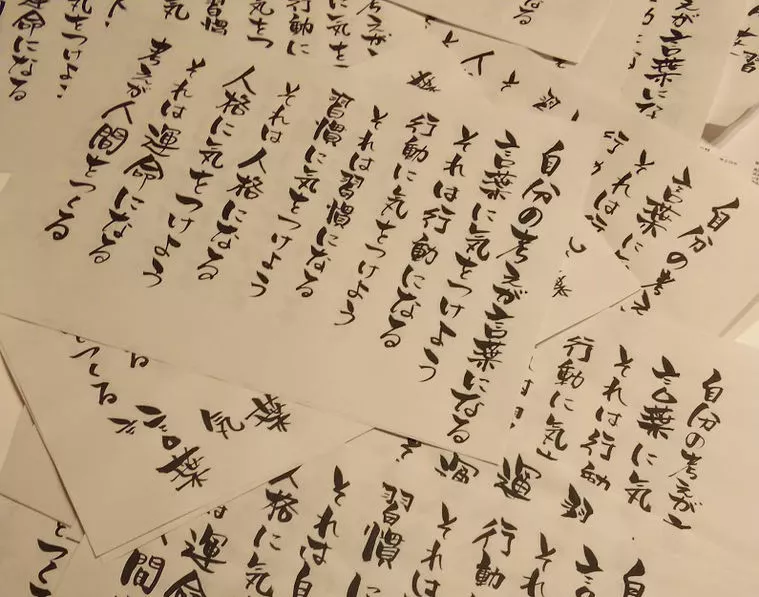 自分の考えが言葉になる
言葉に気をつけよう
それは行動になる
行動に気をつけよう
それは習慣になる
習慣に気をつけよう
それは人格になる
人格に気をつけよう
それは運命になる
考えが人間をつくる
自分の考え
言葉に
それは
自分の考えが
言葉に気
それは行動
行動に気
自
言
それ
行動
それは
習慣に
それは
人格に気
運命
間
言葉
気
葉
運
考えが
行動に
習慣
気
言葉にな